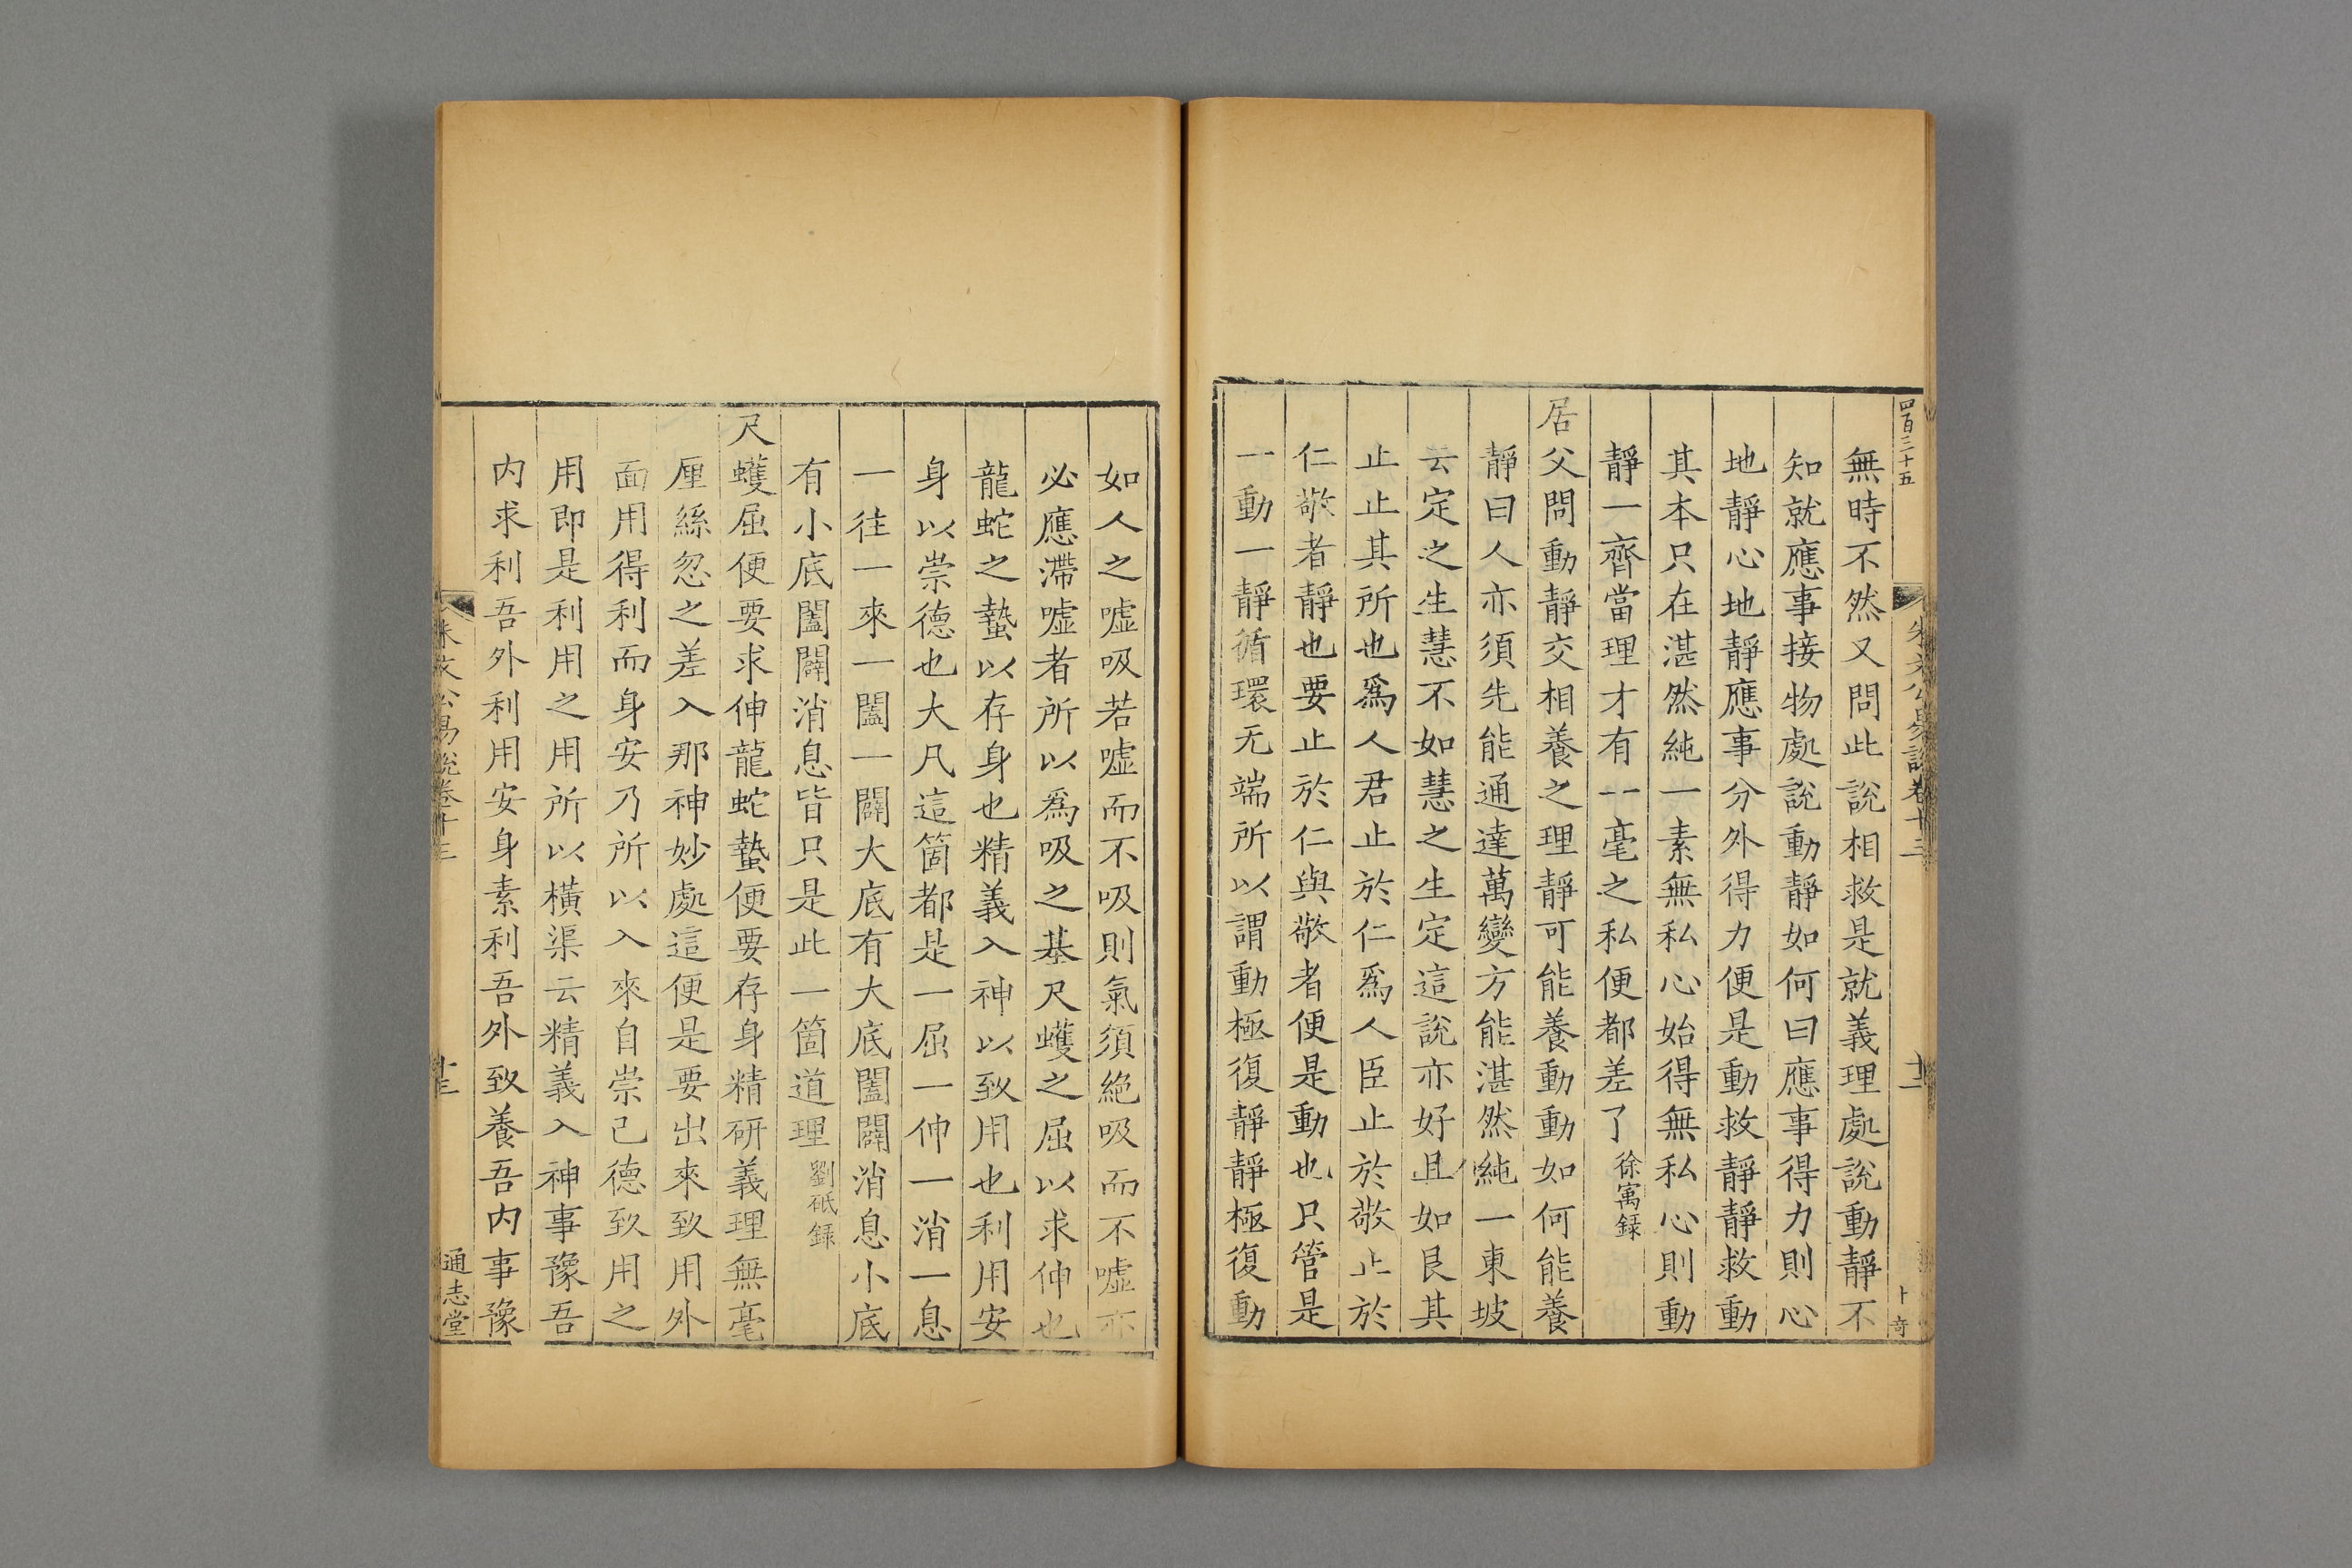 四百三十五
朱文公易說卷十三
十二
卜奇
無時不然又問此說相救是就義理處說動靜不
知就應事接物處說動靜如何曰應事得力則心
地靜心地靜應事分外得力便是動救靜靜救動
其本只在湛然純一素無私心始得無私心則動
靜一齊當理才有一毫之私便都差了徐㝢録
居父問動靜交相養之理靜可能養動動如何能養
靜曰人亦須先能通達萬變方能湛然純一東坡
云定之生慧不如慧之生定這說亦好且如艮其
止止其所也爲人君止於仁爲人臣止於敬止於
仁敬者靜也要止於仁與敬者便是動也只管是
一動一靜循環无端所以謂動極復靜靜極復動
如人之噓吸若噓而不吸則氣須絶吸而不噓亦
必應滯噓者所以爲吸之基尺蠖之屈以求伸也
龍蛇之蟄以存身也精義入神以致用也利用安
身以崇德也大凡這箇都是一屈一伸一消一息
一往一來一闔一闢大底有大底闔闢消息小底
有小底闔闢消息皆只是此一箇道理劉砥録
尺蠖屈便要求伸龍蛇蟄便要存身精研義理無毫
厘絲忽之差入那神妙處這便是要出來致用外
面用得利而身安乃所以入來自崇己德致用之
用即是利用之用所以橫渠云精義入神事豫吾
内求利吾外利用安身素利吾外致養吾内事豫
朱文公易說卷十三
十三
通志堂